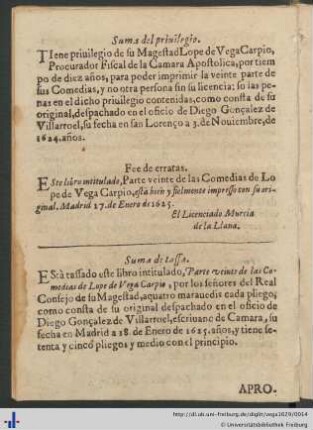 Suma del priuilegio.
TIene priuilegio de su Magestad Lope de Vega Carpio,
Procurador Fiscal de la Camara Apostolica, por tiem
po de diez años, para poder imprimir la veinte parte de
sus Comedias, y no otra persona sin su licencia: so las pe-
nas en el dicho priuilegio contenidas, como consta de su
original, despachado en el oficio de Diego Gonçalez de
Villarroel, su fecha en san Lorenço a 3. de Nouiembre, de
1624. años.
Fee de erratas.
ESte libro intitulado, Parte veinte de las Comedias de Lo
pe de Vega Carpio, està bien y fielmente impresso con su ori-
ginal. Madrid 17. de Enero de 1625.
El Licenciado Murcia
de la Llana.
Suma de tassa.
EStà tassado este libro intitulado, Parte veinte de las Co-
medias de Lope de Vega Carpio, por los señores del Real
Consejo de su Magestad, a quatro marauedis cada pliego,
como consta de su original despachado en el oficio de
Diego Gonçalez de Villarroel, escriuano de Camara, su
fecha en Madrid a 18. de Enero de 1625. años, y tiene se-
tenta y cinco pliegos y medio con el principio.
APRO.
http://dl.ub.uni-freiburg.de/diglit/vega1629/0014
© Universitätsbibliothek Freiburg